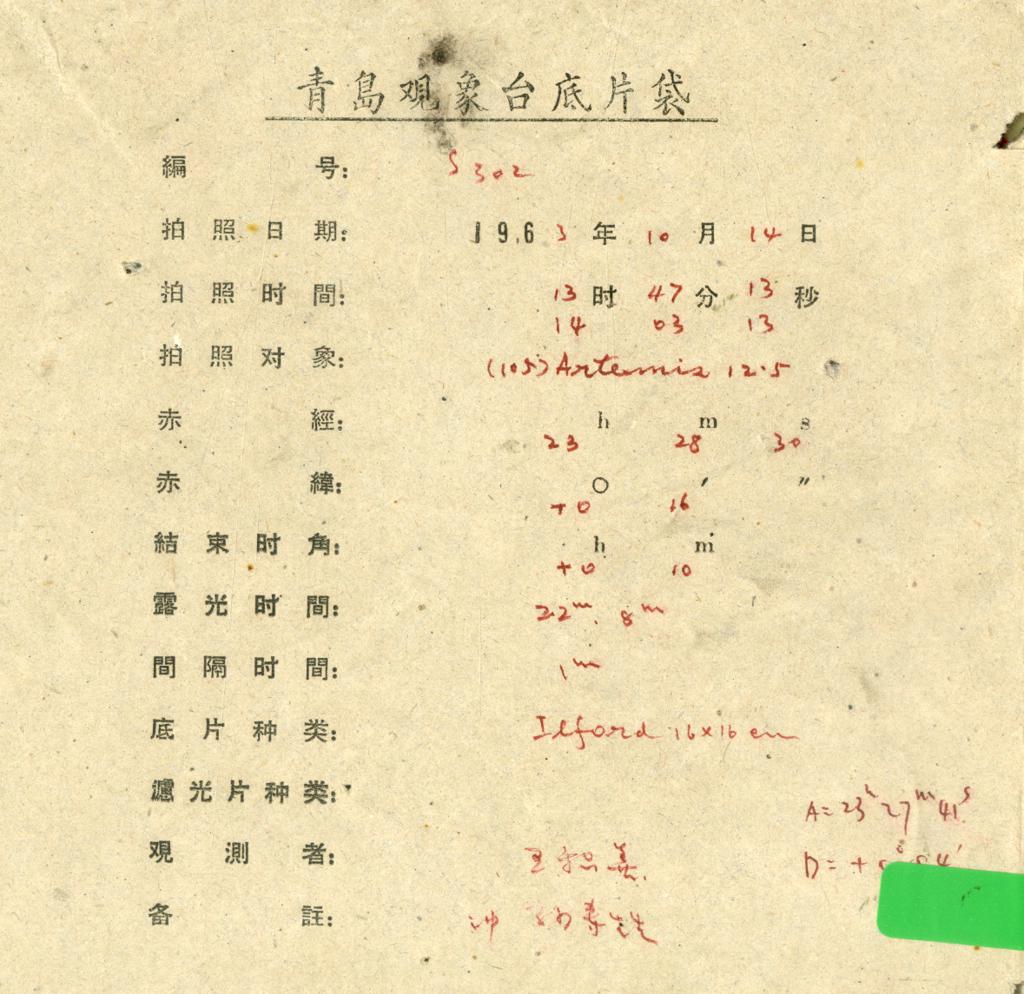 青島观象台底片袋
編号: S302
拍照日期: 1963年10月14日
拍照时間: 13时47分13秒
14 03 13
拍照对象: (105) Artemis 12.5
赤經: 23h 28m 30s
赤緯: +0° 16′ ″
結束时角: +0h 10m
露光时間: 22m. 8m
間隔时間: 1m
底片种类: Ilford 16×16 cm
濾光片种类:
A=23h27m41s
观測者: 王
D=+
备註: 冲